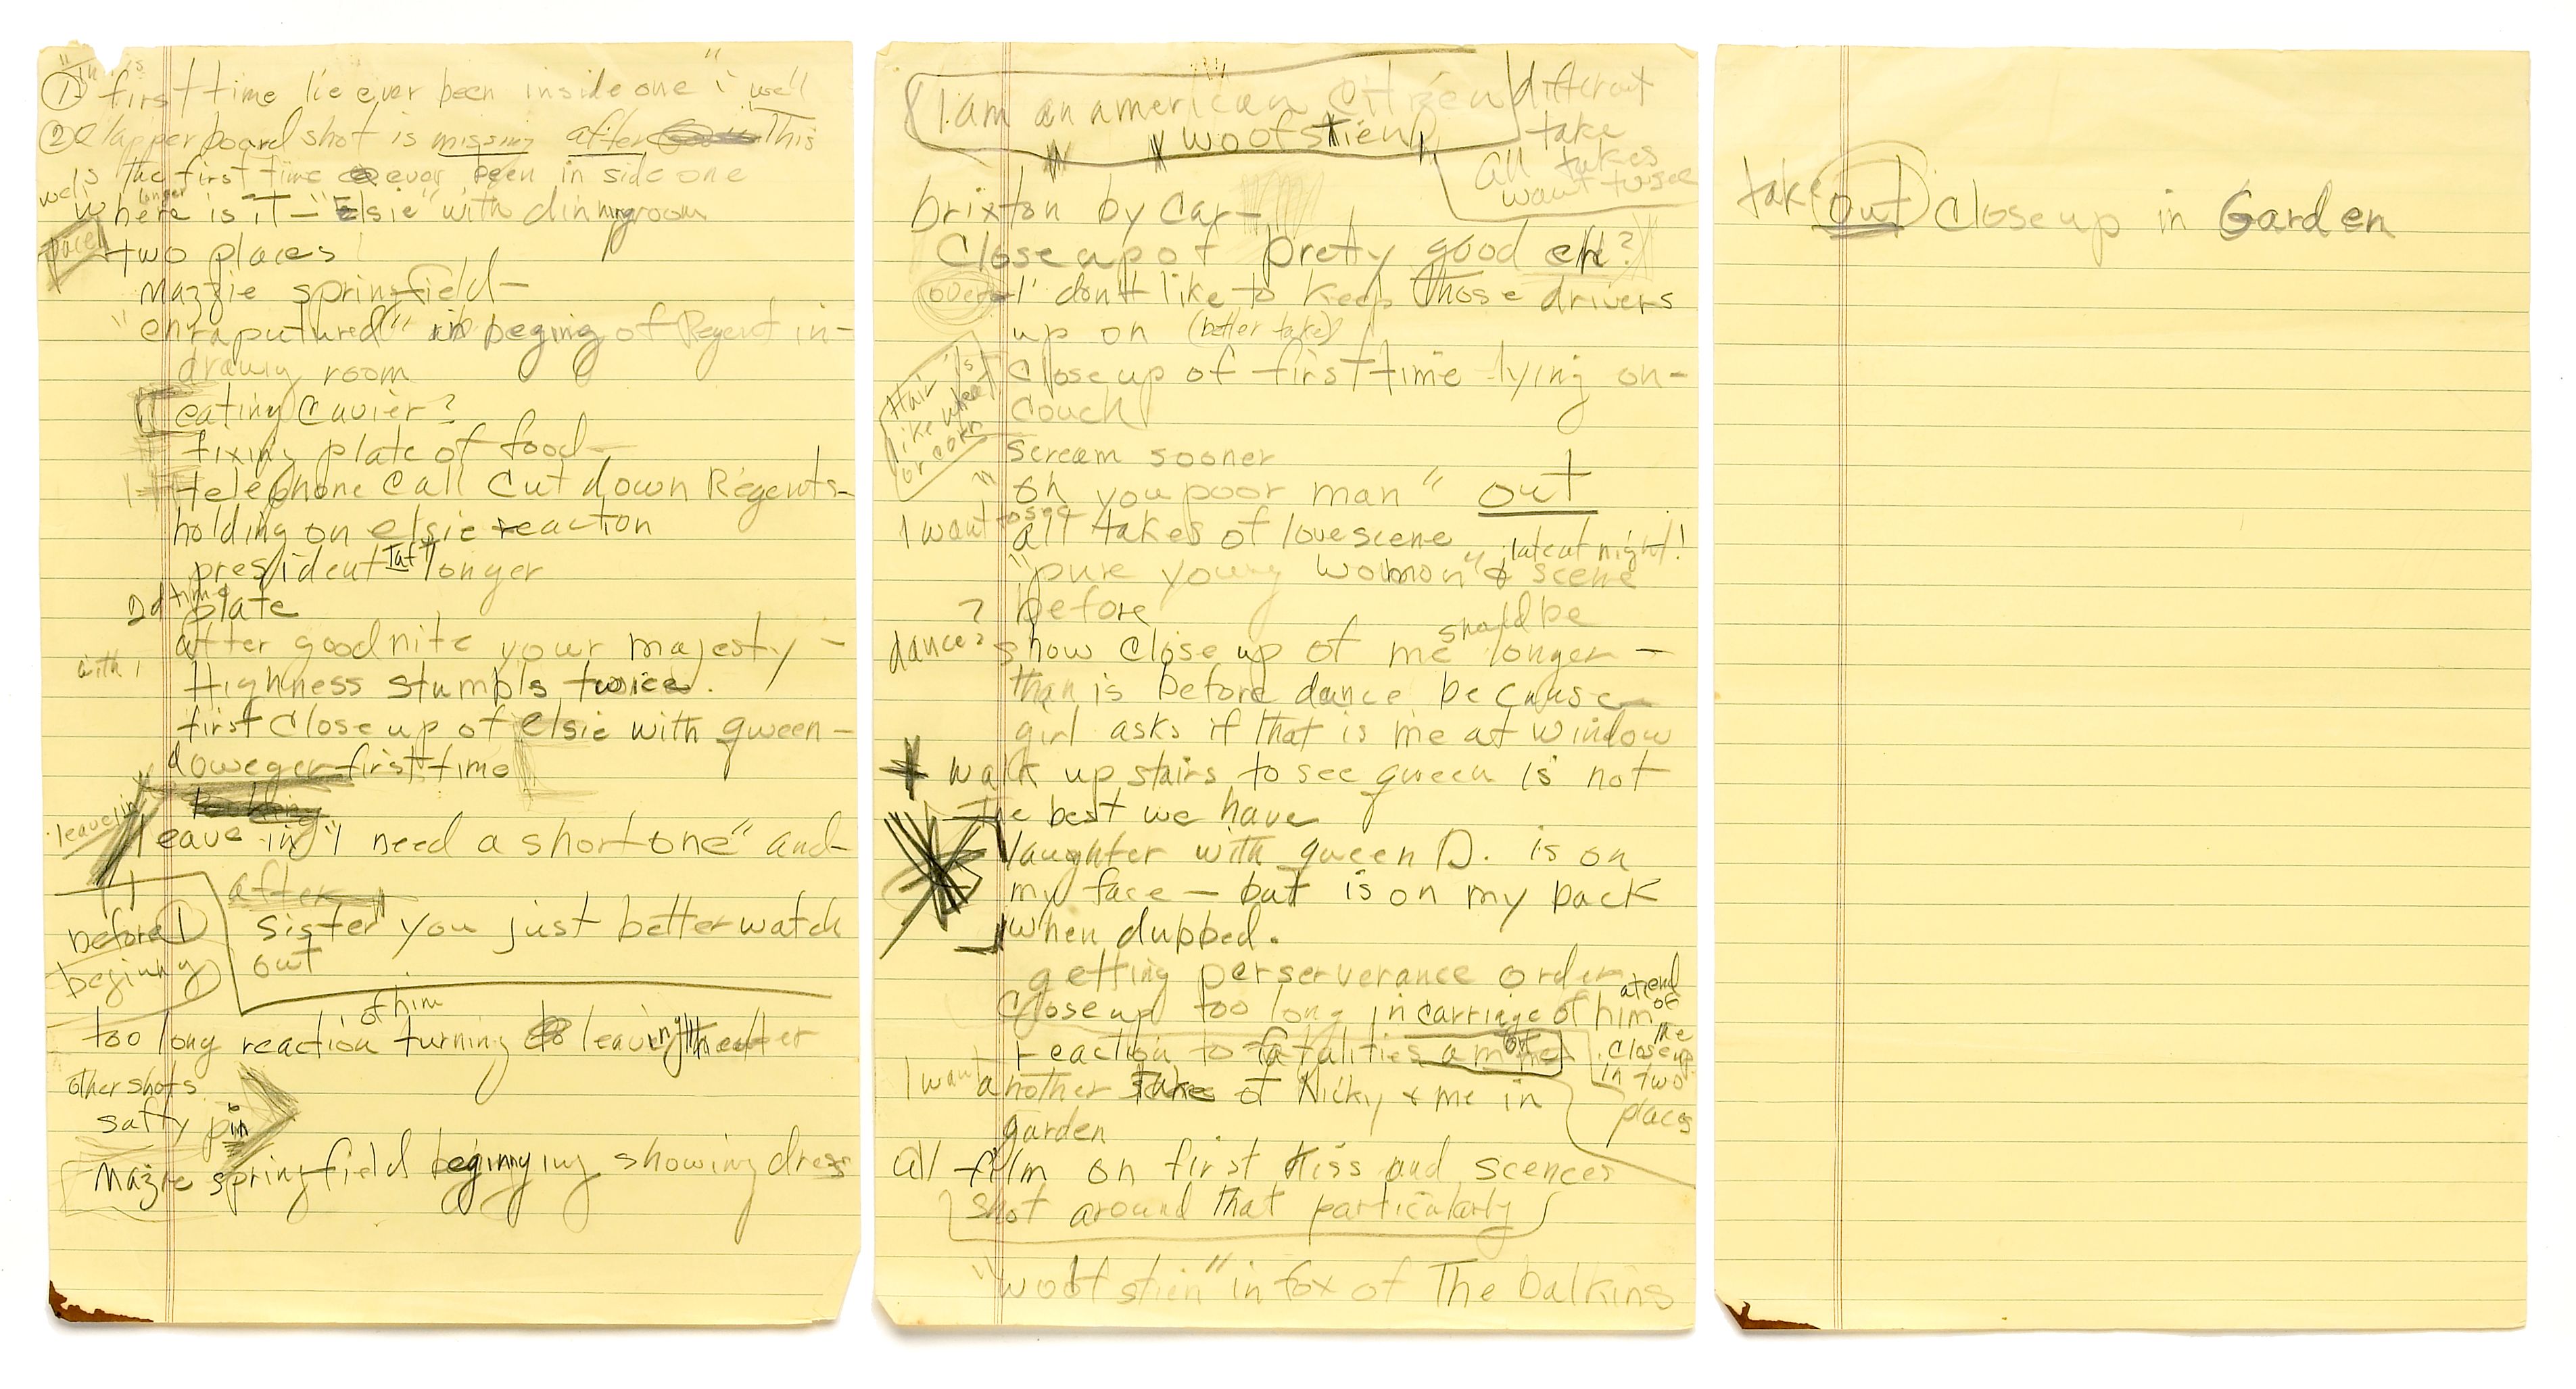 ① first time I've ever been inside one" "well
② Clapper board shot is missing after This
is the first time ever been in side one
where is it – "Elsie" with dinningroom
longer
pace two places
Mazzie springfield –
"enraputured" in beging of Regent in –
drawing room
eating Cavier?
fixing plate of food –
telephone call cut down Regents –
holding on elsie reaction
president Taft longer
2d time plate
after good nite your majesty –
with
Highness stumbls twice.
first Close up of elsie with queen –
doweger first time
leave in
leave in "I need a short one" and –
after
before ① sister you just better watch
beginny out
too long reaction of him turning leaving theater
other shots
safty pin
Mazie springfield beginnying showing dress
"I am an american citizen different
woofstien" take
all takes
want to see
brixton by Car –
Close up of pretty good eh?
over – I don't like to keep those drivers
up on (better take)
Close up of first time lying on –
Couch
Hair is
like wheat
or corn
scream sooner
"oh you poor man" out
I want to see all takes of love scene
"pure young woman" & late at night! scene
? before
dance? show close up of me should be longer –
than is before dance because
girl asks if that is me at window
walk up stairs to see queen is not
the best we have
laughter with queen D. is on
my face – but is on my back
when dubbed.
getting perserverance order
Close up too long in carriage of him at end of
the close up in two places
reaction to fatalities
I want another take of Nicky & me in
garden
all film on first kiss and scences
shot around that particularly
"woof stien" in fox of The balkins
take out Close up in Garden